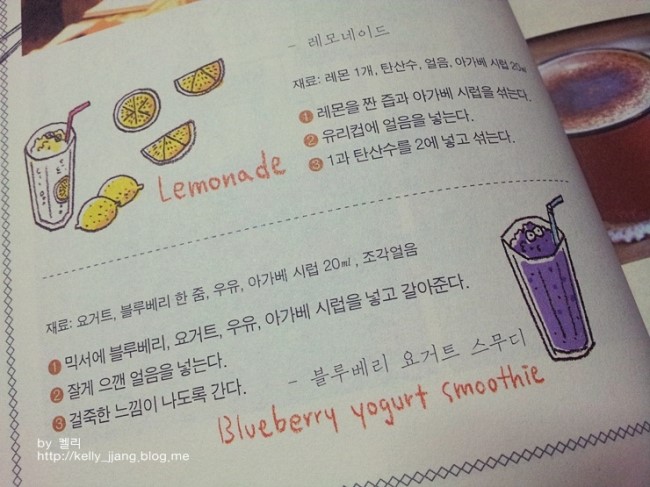 - 레모네이드
재료: 레몬 1개, 탄산수, 얼음, 아가베 시럽 20㎖
1 레몬을 짠 즙과 아가베 시럽을 섞는다.
2 유리컵에 얼음을 넣는다.
3 1과 탄산수를 2에 넣고 섞는다.
Lemonade
재료: 요거트, 블루베리 한 줌, 우유, 아가베 시럽 20㎖, 조각얼음
1 믹서에 블루베리, 요거트, 우유, 아가베 시럽을 넣고 갈아준다.
2 잘게 으깬 얼음을 넣는다.
3 걸쭉한 느낌이 나도록 간다.
- 블루베리 요거트 스무디
Blueberry yogurt smoothie
by 켈리
http://kelly_jjang.blog.me